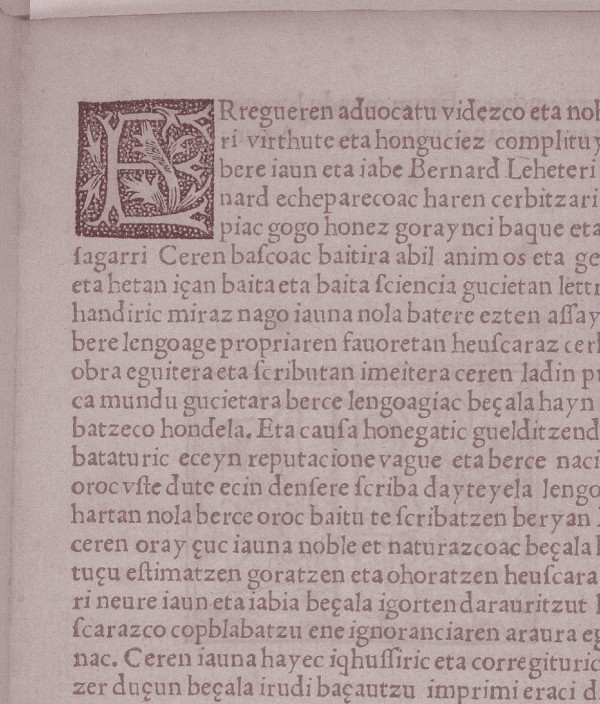 ERregueren aduocatu videzco eta nob
ri virthute eta honguciez complituy
bere iaun eta iabe Bernard Leheteri
nard echeparecoac haren cerbitzari
piac gogo honez goraynci baque eta
ſagarri Ceren baſcoac baitira abil animos eta ge
eta hetan içan baita eta baita ſciencia gucietan lettr
handiric miraz nago iauna nola batere ezten aſſay
bere lengoage propriaren fauoretan heuſcaraz cerb
obra eguitera eta ſcributan imeitera ceren ladin pu
ca mundu gucietara berce lengoagiac beçala hayn
batzeco hondela. Eta cauſa honegatic guelditzend
bataturic eceyn reputacione vague eta berce naci
oroc vſte dute ecin denſere ſcriba dayteyela lengo
hartan nola berce oroc baitu te ſcribatzen beryan
ceren oray çuc iauna noble et naturazcoac beçala
tuçu eſtimatzen goratzen eta ohoratzen heuſcara
ri neure iaun eta iabia beçala igorten darauritzut
ſcarazco copblabatzu ene ignoranciaren araura eg
nac. Ceren iauna hayec iqhuſſiric eta corregituric
zer duçun beçala irudi baçautzu imprimi eraci d